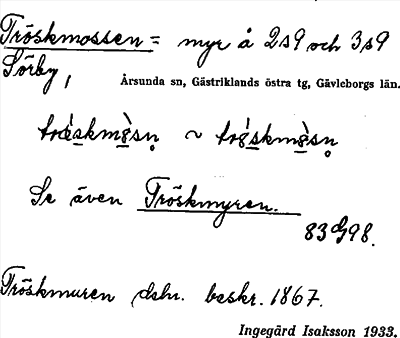 Tröskmossen = myr å 2s9 och 3s9
Sörby,
Årsunda sn, Gästriklands östra tg, Gävleborgs län.
~
Se även Tröskmyren.
Tröskmuren dsbr. beskr. 1867.
Ingegärd Isaksson 1933.